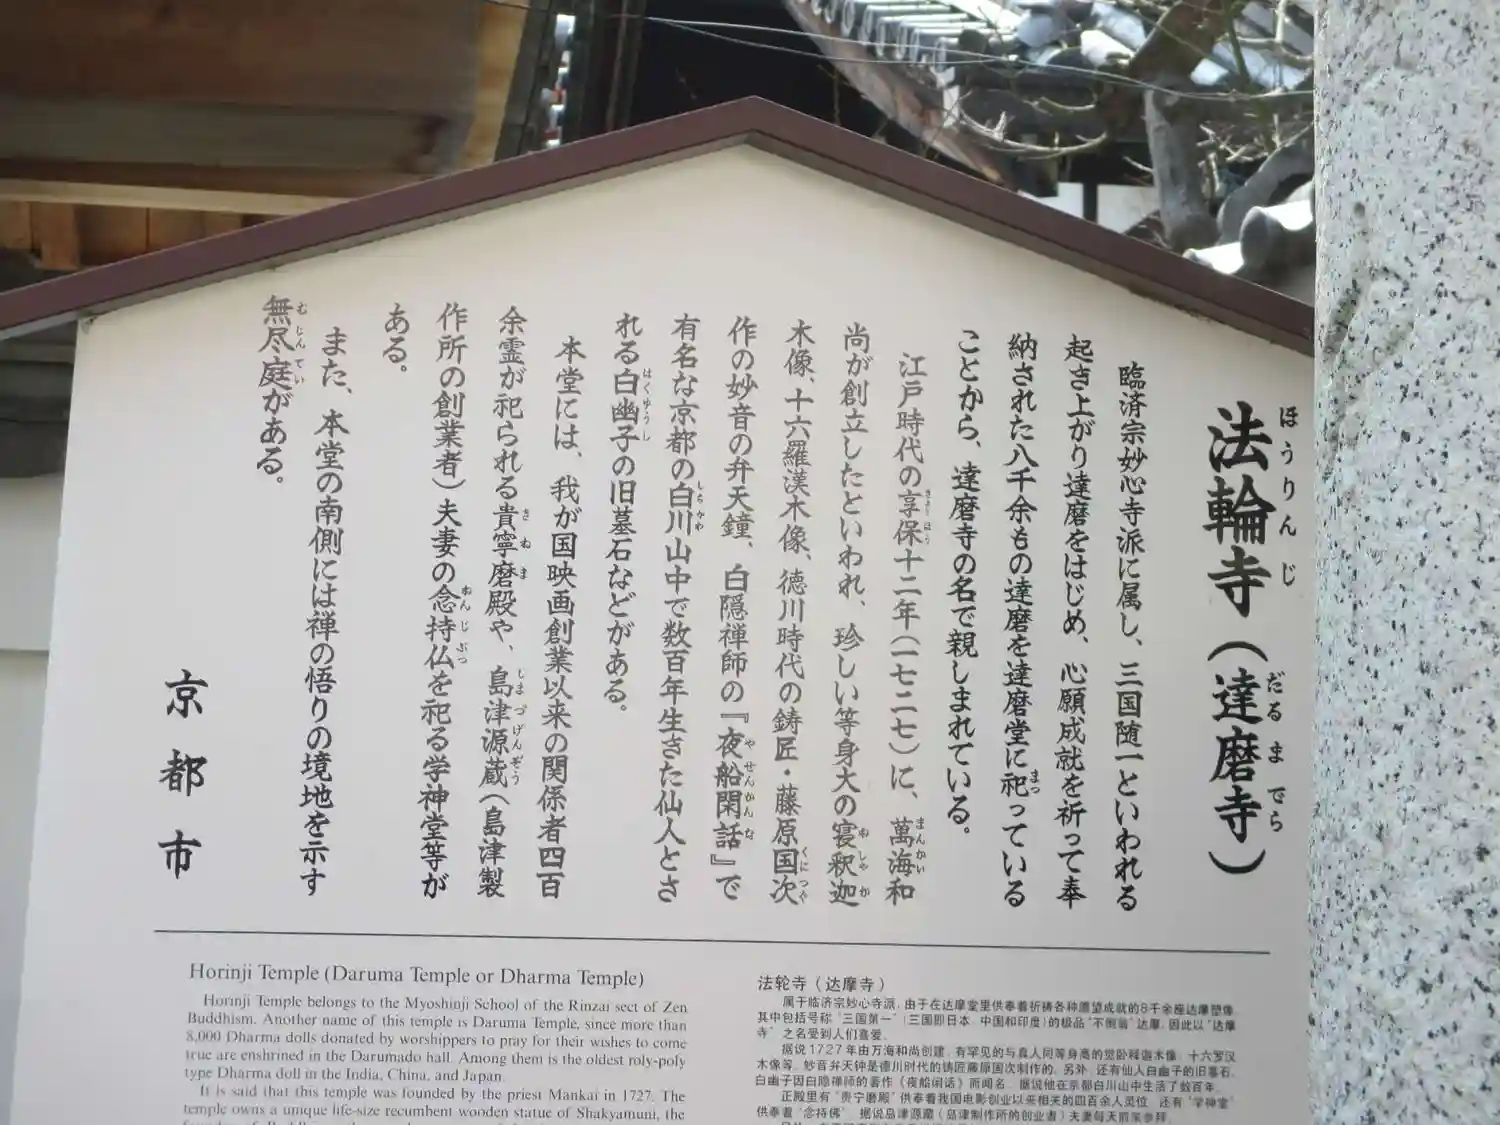 法輪寺（達磨寺）
ほうりんじ
だるまでら
臨済宗妙心寺派に属し、三国随一といわれる
起き上がり達磨をはじめ、心願成就を祈って奉
納された八千余もの達磨を達磨堂に祀っている
まつ
ことから、達磨寺の名で親しまれている。
江戸時代の享保十二年（一七二七）に、萬海和
きょうほう
まんかい
尚が創立したといわれ、珍しい等身大の寝釈迦
ねしゃか
木像、十六羅漢木像、徳川時代の鋳匠・藤原国次
くにつや
作の妙音の弁天鐘、白隠禅師の『夜船閑話』で
やせんかんな
有名な京都の白川山中で数百年生きた仙人とさ
しらかわ
れる白幽子の旧墓石などがある。
はくゆうし
本堂には、我が国映画創業以来の関係者四百
余霊が祀られる貴寧磨殿や、島津源蔵（島津製
きねま
しまづげんぞう
作所の創業者）夫妻の念持仏を祀る学神堂等が
ねんじぶつ
ある。
また、本堂の南側には禅の悟りの境地を示す
無尽庭がある。
むじんてい
京都市
Horinji Temple (Daruma Temple or Dharma Temple)
Horinji Temple belongs to the Myoshinji School of the Rinzai sect of Zen
Buddhism. Another name of this temple is Daruma Temple, since more than
8,000 Dharma dolls donated by worshippers to pray for their wishes to come
true are enshrined in the Darumado hall. Among them is the oldest roly-poly
type Dharma doll in the India, China, and Japan.
It is said that this temple was founded by the priest Mankai in 1727. The
temple owns a unique life-size recumbent wooden statue of Shakyamuni, the
法轮寺（达摩寺）
属于临济宗妙心寺派，由于在达摩堂里供奉着祈祷各种愿望成就的8千余座达摩塑像，
其中包括号称“三国第一”（三国即日本、中国和印度）的极品“不倒翁”达摩，因此以“达摩
寺”之名受到人们喜爱。
据说1727年由万海和尚创建，有罕见的与真人同等身高的觉卧释迦木像、十六罗汉
木像等，妙音弁天钟是德川时代的铸匠藤原国次制作的，另外，还有仙人白幽子的旧墓石，
白幽子因白隐禅师的著作《夜船闲话》而闻名，据说他在京都白川山中生活了数百年。
正殿里有“贵宁磨殿”供奉着我国电影创业以来相关的四百余人灵位，还有“学神堂”
供奉着“念持佛”，据说岛津源藏（岛津制作所的创业者）夫妻每天前来参拜。